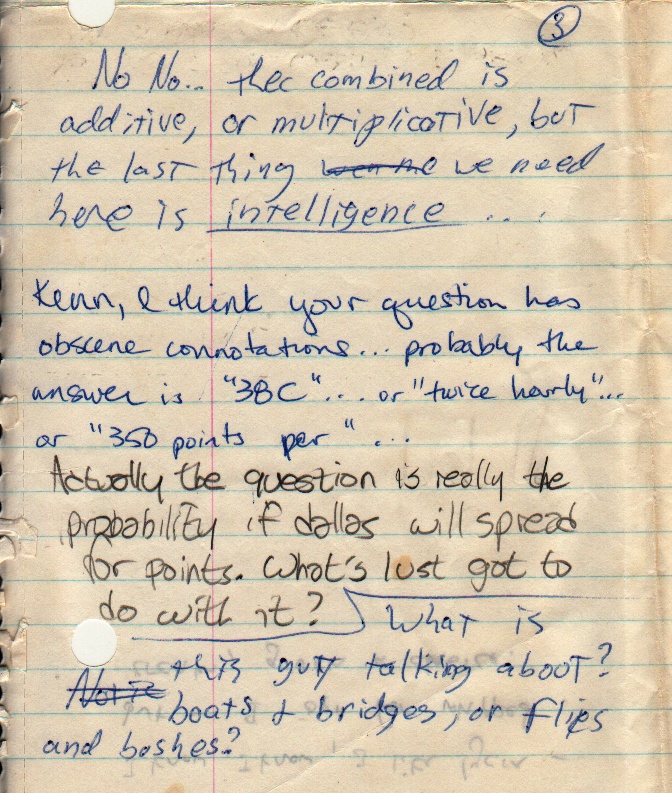 3
No No... thec combined is
additive, or multiplicative, but
the last thing we need
here is intelligence ...
Kenn, I think your question has
obscene connotations... probably the
answer is "38C"... or "twice hourly"...
or "350 points per" ...
Actually the question is really the
probability if dallas will spread
for points. What's lust got to
do with it?
What is
this guy talking about?
boats + bridges, or flips
and boshes?